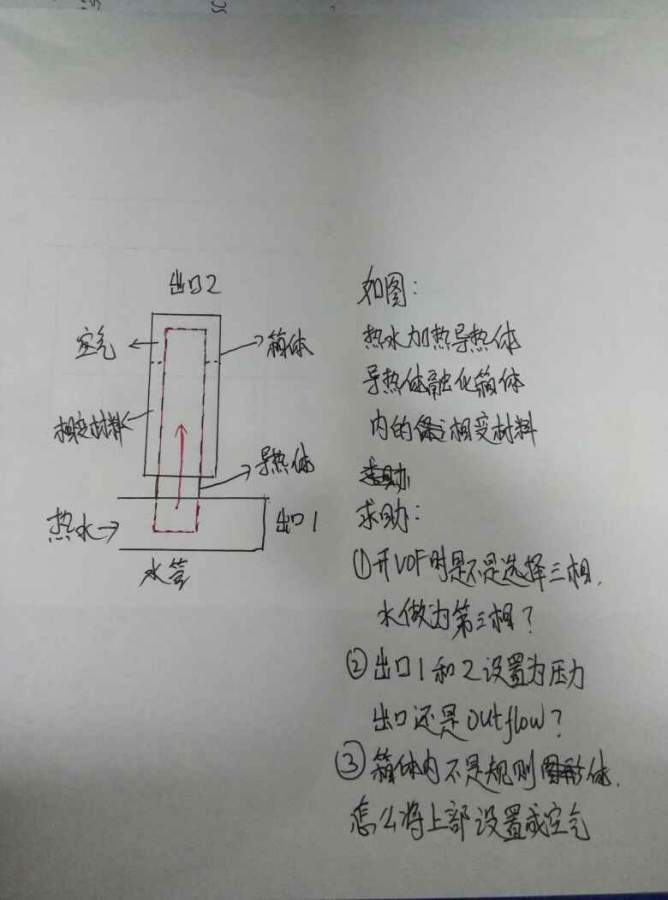 出口2
空气
箱体
相变材料
导热体
热水
出口1
水管
如图:
热水加热导热体
导热体融化箱体
内的相变材料
求助:
①开VOF时是不是选择三相,
水做为第三相?
②出口1和2设置为压力
出口还是outflow?
③箱体内不是规则体,
怎么将上部设置成空气